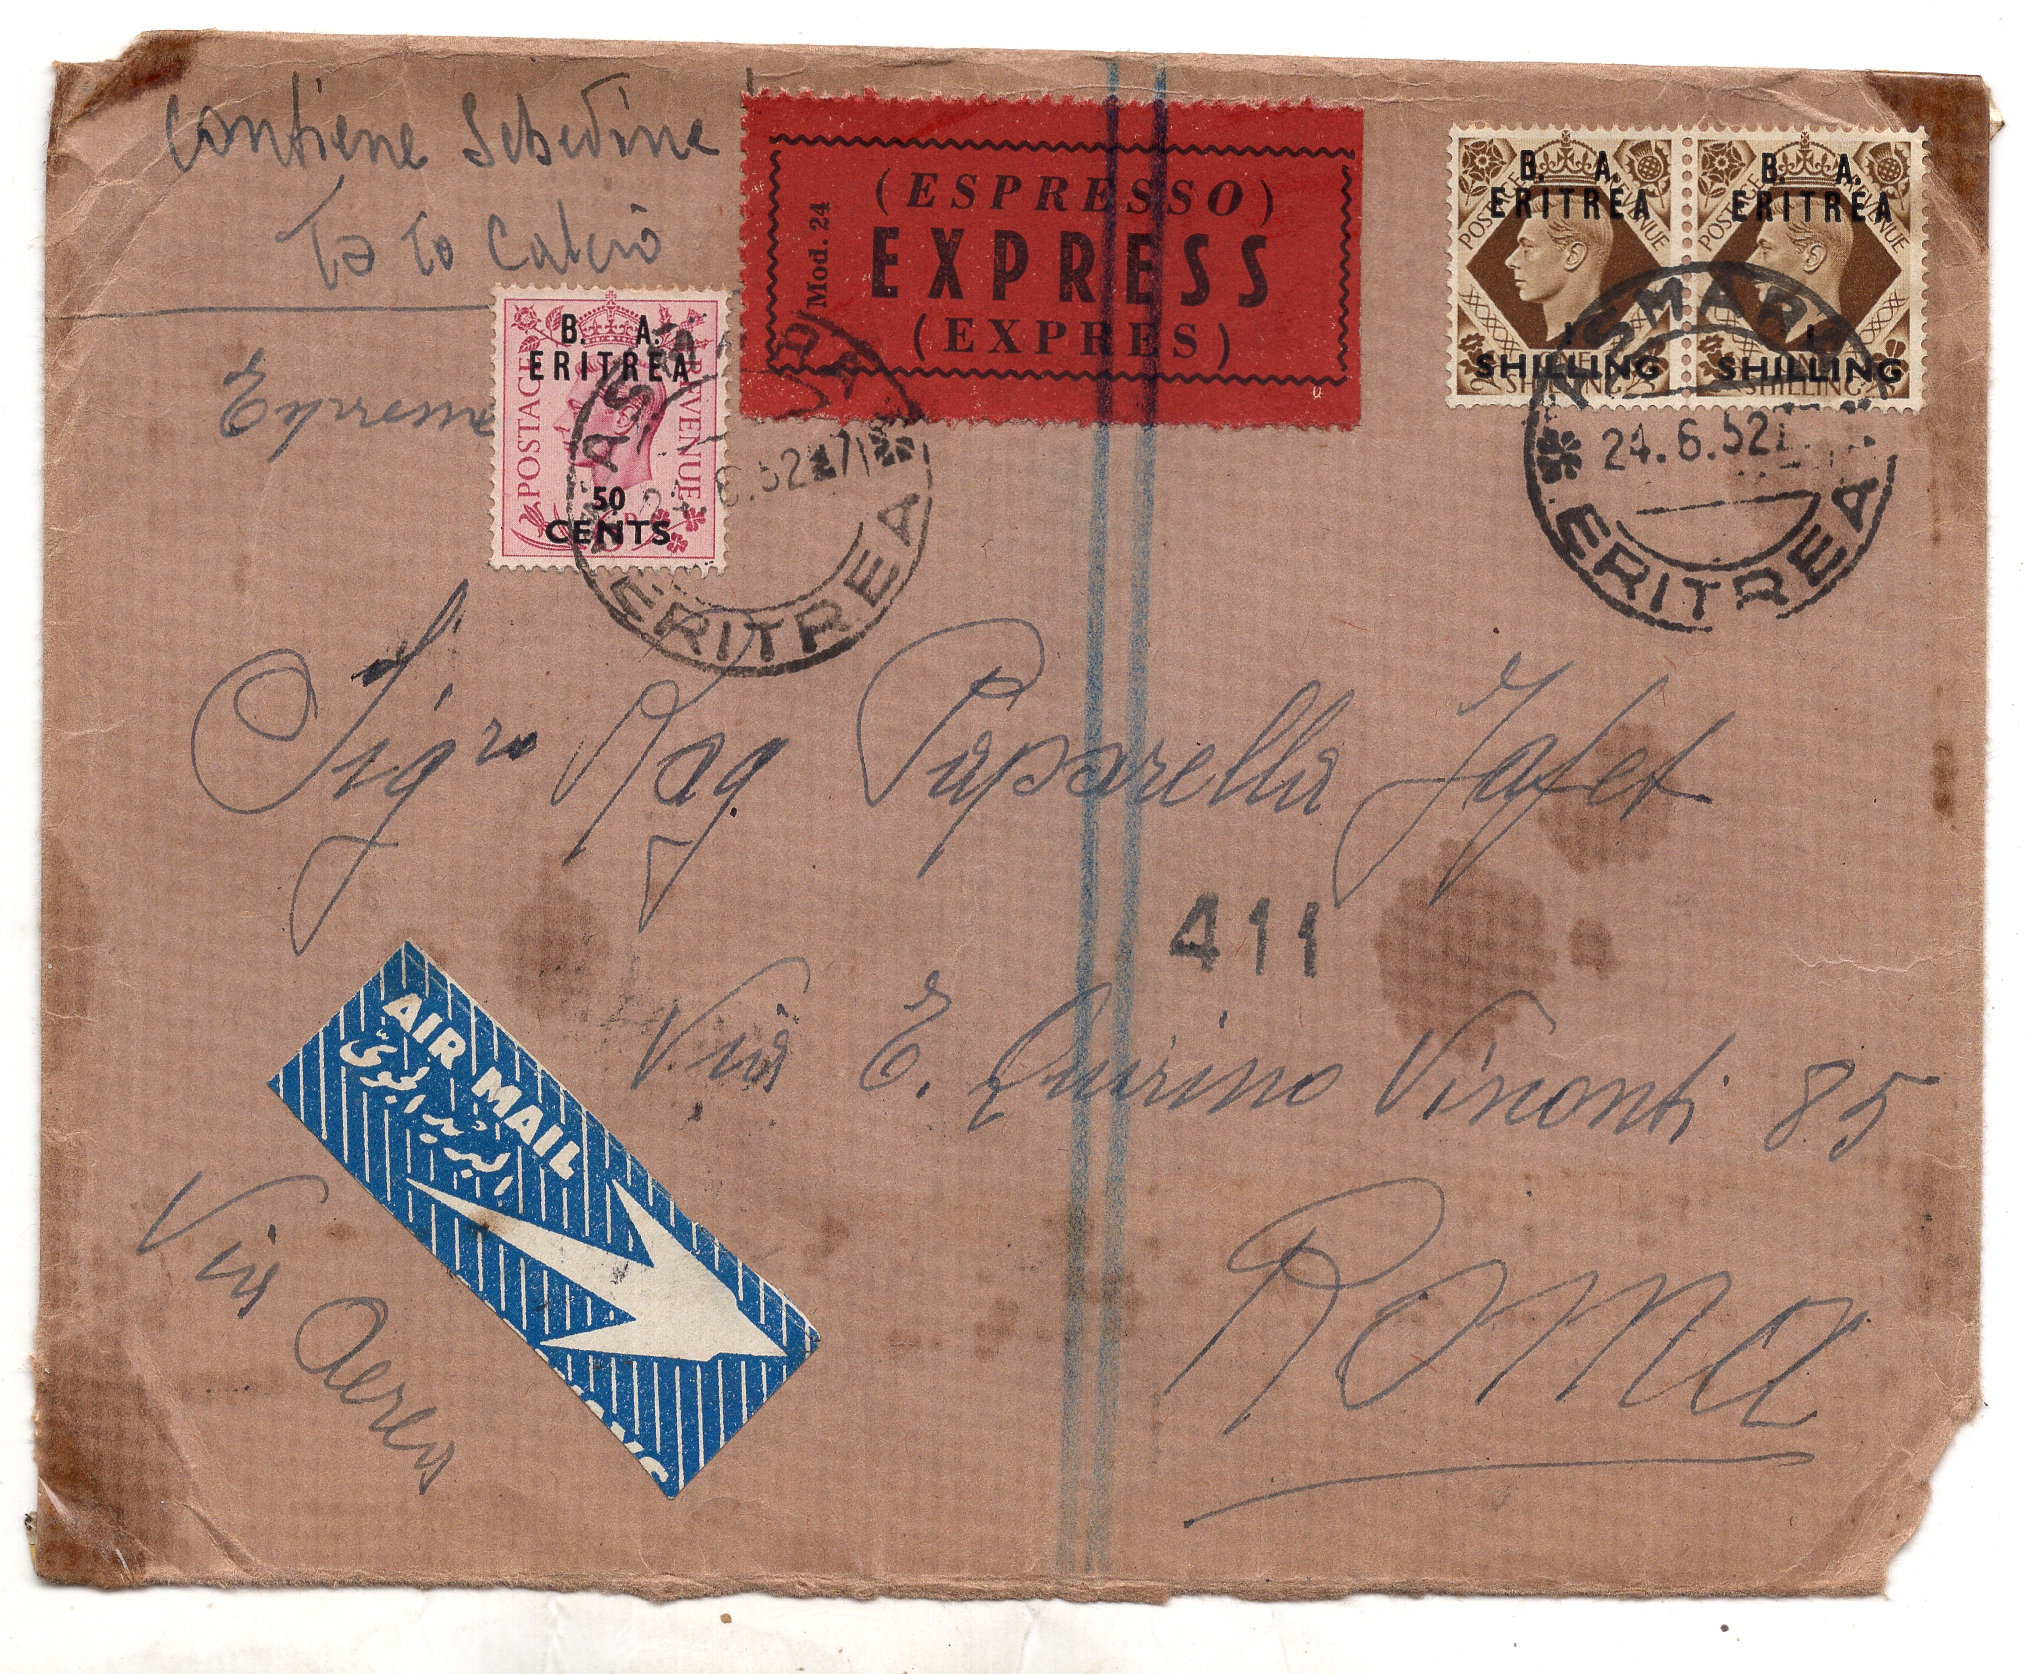 Contiene Schedine
To to Calcio
(ESPRESSO)
EXPRESS
(EXPRES)
Mod. 24
B. A.
ERITREA
POSTAGE REVENUE
1
SHILLING
B. A.
ERITREA
POSTAGE REVENUE
1
SHILLING
ASMARA
24.6.52
ERITREA
B. A.
ERITREA
POSTAGE REVENUE
50
CENTS
ASMARA
24.6.52
ERITREA
Sigr Rag Paparella Jafet
411
Via E. Quirino Visconti 85
Roma
AIR MAIL
البريد الجوى
Via Aerea